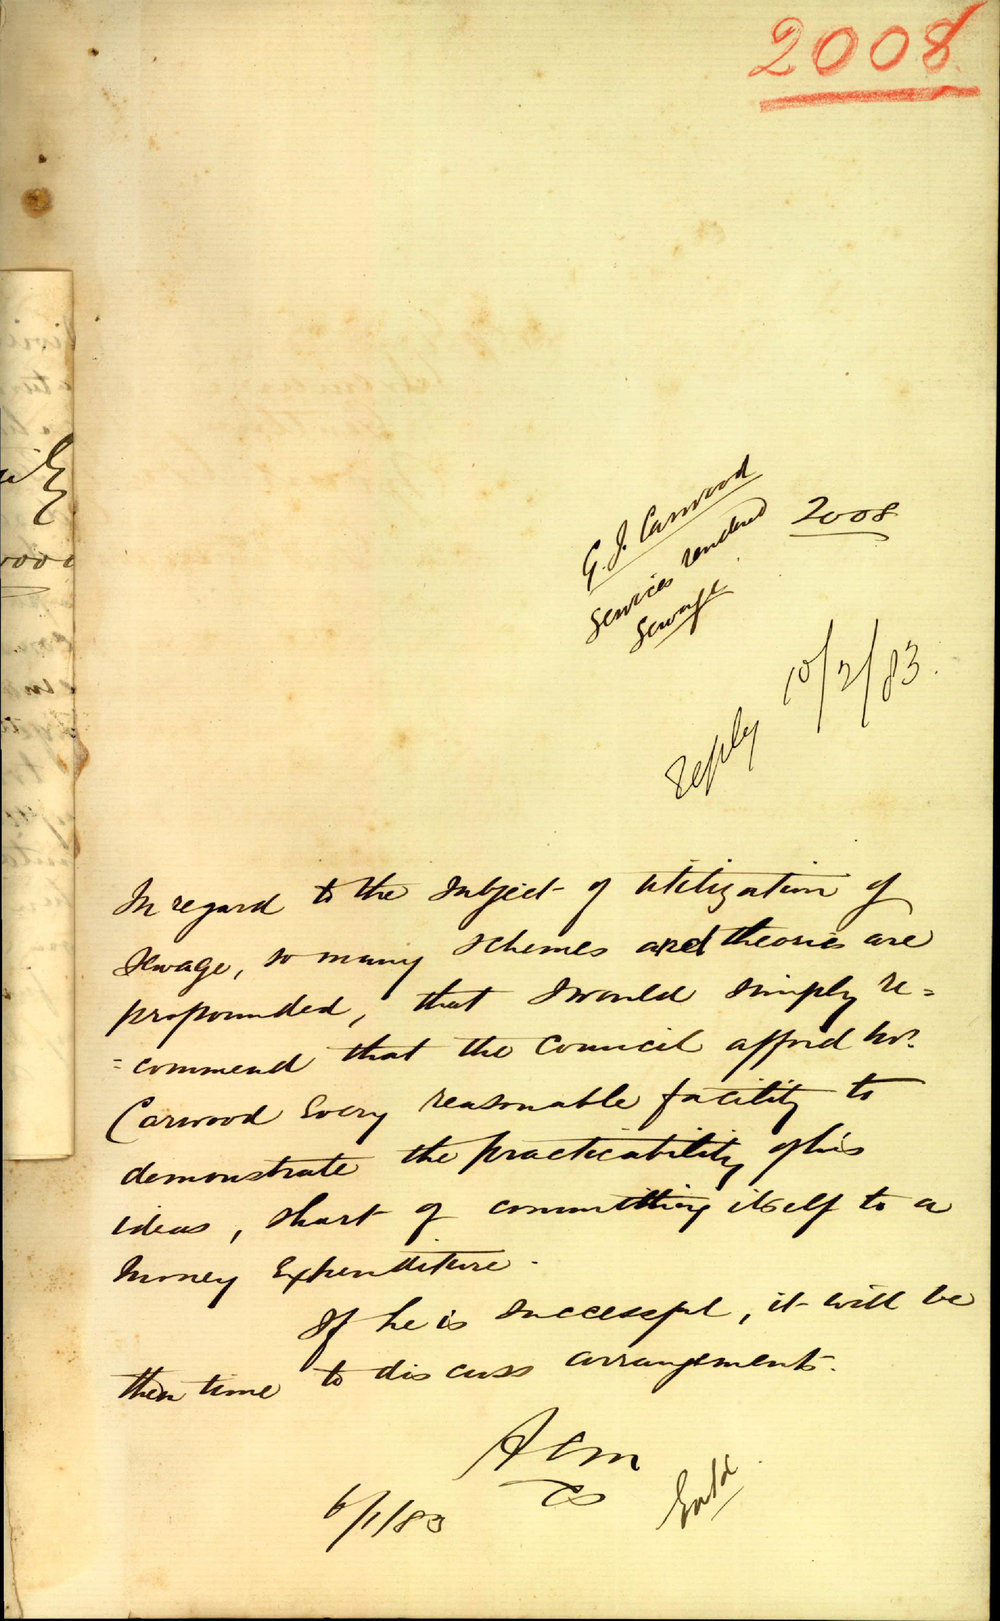 2008
G. J. Carwood
Services rendered
Sewage
2008
Reply 10/2/83.
In regard to the subject of utilization of
Sewage, so many schemes and theories are
propounded, that I would simply re=
=commend that the Council afford Mr.
Carwood Every reasonable facility to
demonstrate the practicability of his
ideas, short of committing itself to a
Money Expenditure.
If he is successful, it will be
then time to discuss arrangements.
ACM
CS
6/1/83